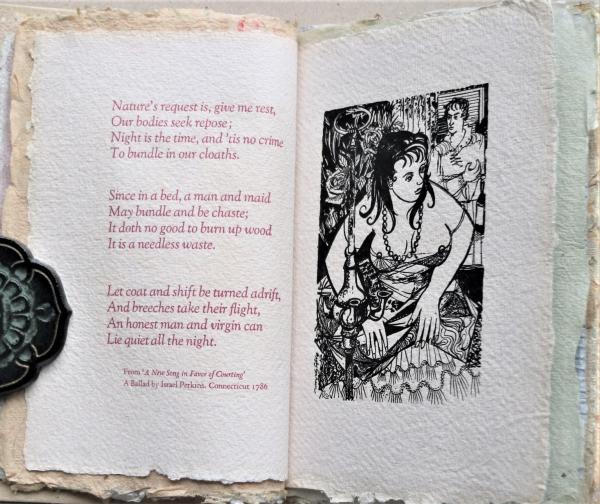 Nature's request is, give me rest,
Our bodies seek repose;
Night is the time, and 'tis no crime
To bundle in our cloaths.
Since in a bed, a man and maid
May bundle and be chaste;
It doth no good to burn up wood
It is a needless waste.
Let coat and shift be turned adrift,
And breeches take their flight,
An honest man and virgin can
Lie quiet all the night.
From 'A New Song in Favor of Courting'
A Ballad by Israel Perkins. Connecticut 1786